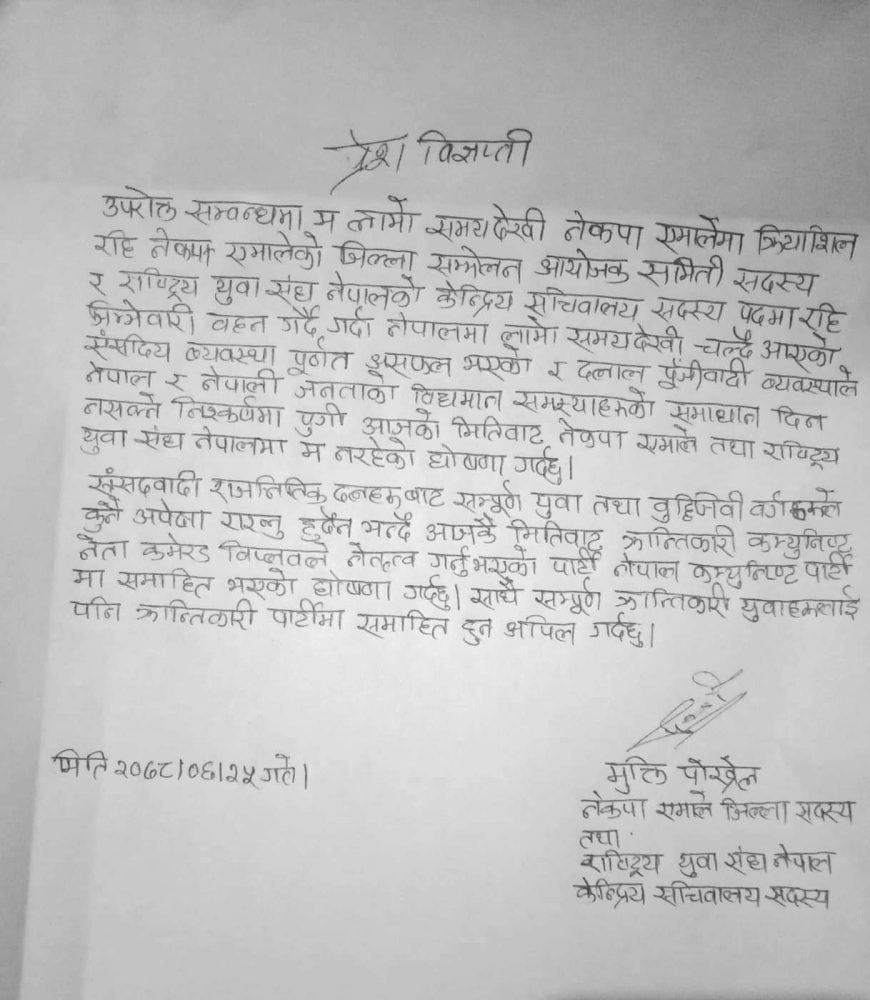 प्रेश विज्ञप्ती
उपरोक्त सम्वन्धमा म लामो समयदेखी नेकपा एमालेमा क्रियाशिल
रहि नेकपा एमालेको जिल्ला सम्मेलन आयोजक समिती सदस्य
र राष्ट्रिय युवा संघ नेपालको केन्द्रिय सचिवालय सदस्य पदमा रहि
जिम्मेवारी वहन गर्दै गर्दा नेपालमा लामो समयदेखी चल्दै आएको
संसदिय व्यवस्था पूर्णत असफल भएको र दलाल पुँजीवादी व्यवस्थाले
नेपाल र नेपाली जनताको विद्यमान समस्याहरुको समाधान दिन
नसक्ने निश्कर्षमा पुगी आजको मितिवाट नेकपा एमाले तथा राष्ट्रिय
युवा संघ नेपालमा म नरहेको घोषणा गर्दछु।
संसदवादी राजनितिक दलहरु बाट सम्पूर्ण युवा तथा वुद्दिजिवी वर्गहरुले
कुनै अपेक्षा राख्नु हुदैन भन्दै आजकै मितिवाट क्रान्तिकारी कम्युनिष्ट
नेता कमरेड विप्लवले नेतृत्व गर्नुभएको पार्टी नेपाल कम्युनिष्ट पार्टी
मा समाहित भएको घोषणा गर्दछु। साथै सम्पूर्ण क्रान्तिकारी युवाहरुलाई
पनि क्रान्तिकारी पार्टीमा समाहित हुन अपिल गर्दछु।
मिति २०७८।०६।२५ गते।
मुक्ति पोख्रेल
नेकपा एमाले जिल्ला सदस्य
तथा
राष्ट्रिय युवा संघ नेपाल
केन्द्रिय सचिवालय सदस्य